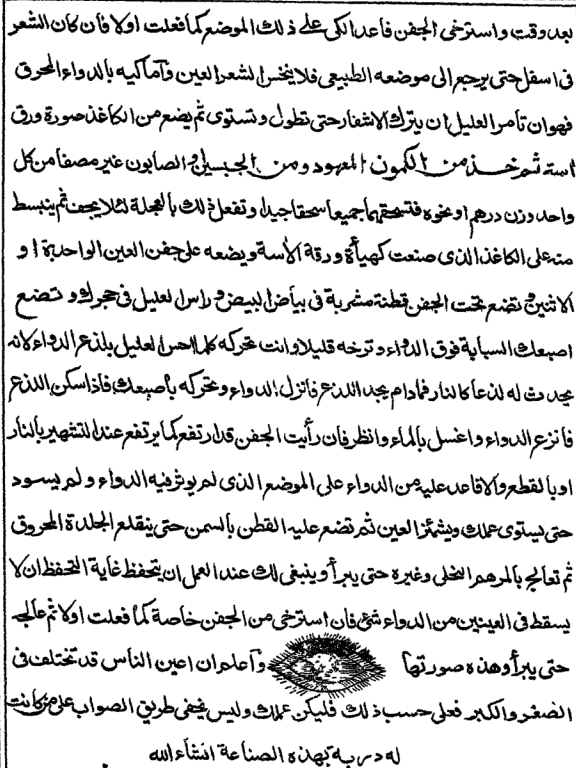 بعد وقت واسترخى الجفن فاعد الكى على ذلك الموضع كما فعلت اولا فان كان الشعر
فى اسفل حتى يرجع الى موضعه الطبيعى فلا ينخس الشعر العين واما كيه بالدواء المحرق
فهو ان تامر العليل ان يترك الاشفار حتى تطول وتستوى ثم يضع من الكاغذ صورة ورق
اسة ثم خذ من الكمون المعهود ومن الجبس والصابون غير مصفا من كل
واحد وزن درهم او نحوه فتسحقهما جميعا سحقا جيدا وتفعل ذلك بالعجلة لئلا يجف ثم ينبسط
منه على الكاغذ الذى صنعت كهيأة ورقة الأسة ويضعه على جفن العين الواحدة او
الاثنين وتضع تحت الجفن قطنة مشربة فى بياض البيض وراس العليل فى حجرك وتضع
اصبعك السبابة فوق الدواء وترخه قليلا وانت تحركه كلما احس العليل بلذع الدواء لانه
يحدث له لذعا كالنار فما دام يجد اللذع فانزل الدواء وتحركه بأصبعك فاذا سكن اللذع
فأنزع الدواء واغسل بالماء وانظر فان رأيت الجفن قد ارتفع كما يرتفع عند التشهير بالنار
او بالقطع والا فاعد عليه من الدواء على الموضع الذى لم يوثر فيه الدواء ولم يسود
حتى يستوى عملك ويشمئز العين ثم تضع عليه القطن بالسمن حتى ينقلع الجلدة المحروق
ثم تعالج بالمرهم النخلى وغيره حتى يبرأ وينبغى لك عند العمل ان يتحفظ غاية التحفظ ان لا
يسقط فى العينين من الدواء شئ فان استرخى من الجفن خاصة كما فعلت اولا ثم عالجه
حتى يبرأ وهذه صورتها واعلم ان اعين الناس قد تختلف فى
الصغر والكبر فعلى حسب ذلك فليكن عملك وليس يخفى طريق الصواب على من كانت
له دربة بهذه الصناعة انشاء الله